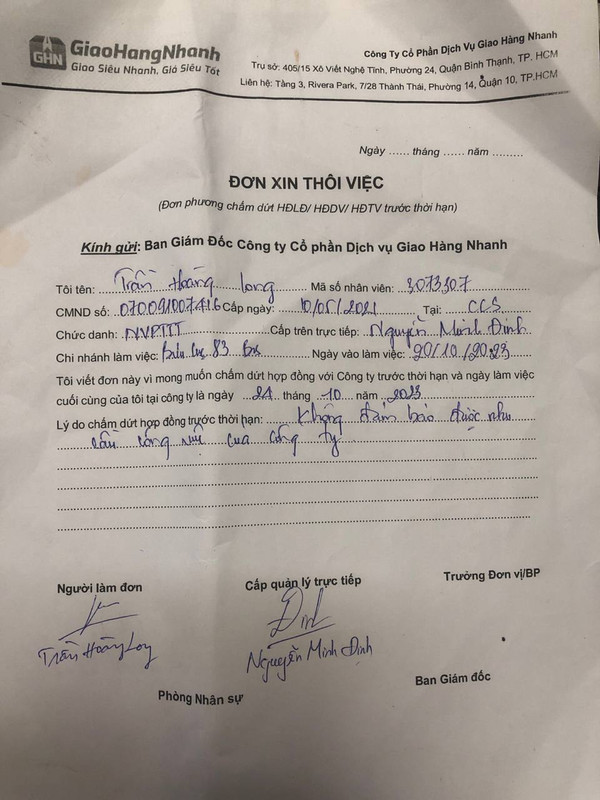 GHN GiaoHangNhanh
Giao Siêu Nhanh, Giá Siêu Tốt
Công Ty Cổ Phần Dịch Vụ Giao Hàng Nhanh
Trụ sở: 405/15 Xô Viết Nghệ Tĩnh, Phường 24, Quận Bình Thạnh, TP. HCM
Liên hệ: Tầng 3, Rivera Park, 7/28 Thành Thái, Phường 14, Quận 10, TP.HCM
Ngày ...... tháng ...... năm .........
ĐƠN XIN THÔI VIỆC
(Đơn phương chấm dứt HĐLĐ/ HĐDV/ HĐTV trước thời hạn)
Kính gửi: Ban Giám Đốc Công ty Cổ phần Dịch vụ Giao Hàng Nhanh
Tôi tên: Trần Hoàng Long Mã số nhân viên: 3073307
CMND số: 070091007416 Cấp ngày: 10/05/2021 Tại: CCS
Chức danh: NVPTTT Cấp trên trực tiếp: Nguyễn Minh Định
Chi nhánh làm việc: Bưu cục 83 Ngày vào làm việc: 20/10/2023
Tôi viết đơn này vì mong muốn chấm dứt hợp đồng với Công ty trước thời hạn và ngày làm việc
cuối cùng của tôi tại công ty là ngày 24 tháng 10 năm 2023
Lý do chấm dứt hợp đồng trước thời hạn: Không đảm bảo được nhu
cầu công việc của công ty
Người làm đơn Cấp quản lý trực tiếp Trưởng Đơn vị/BP
Trần Hoàng Long Nguyễn Minh Định
Phòng Nhân sự Ban Giám đốc